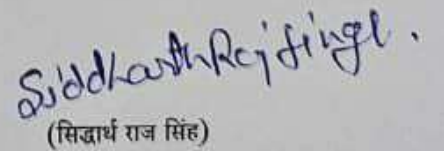 Siddharth Raj Singh.
(सिद्धार्थ राज सिंह)